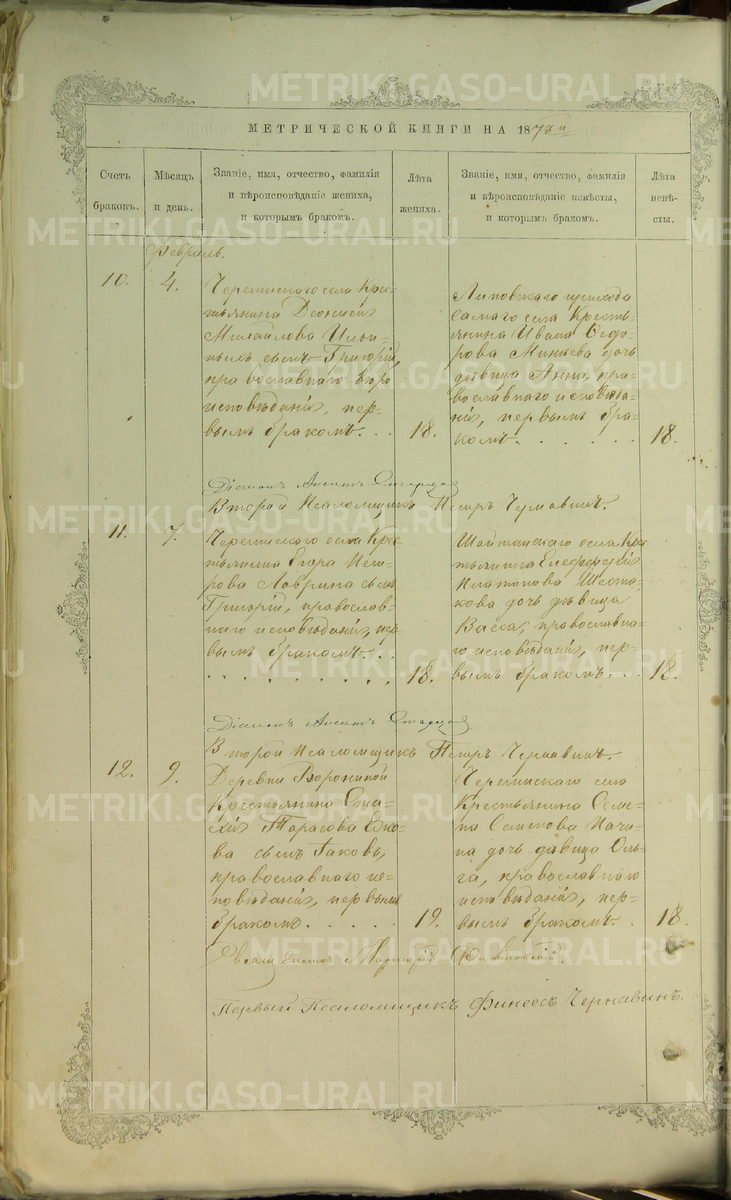 МЕТРИЧЕСКОЙ КНИГИ НА 1878й
Счетъ браковъ.
Мѣсяцъ и день.
Званіе, имя, отчество, фамилія
и вѣроисповѣданіе жениха,
и которымъ бракомъ.
Лѣта жениха.
Званіе, имя, отчество, фамилія
и вѣроисповѣданіе невѣсты,
и которымъ бракомъ.
Лѣта невѣ-
сты.
Февраль.
10. 4.
Черемисскаго села Крес-
тьянина Деонисія
Михайлова Ильи-
ныхъ сынъ Григорій,
православнаго вѣро
исповѣданія, пер-
вымъ бракомъ. . . 18.
Липовскаго прихода
самаго села Кресть-
янина Ивана Ѳедо-
рова Минѣева дочь
дѣвица Анна, пра-
вославнаго исповѣда-
нія, первымъ бра-
комъ. . . . . . 18.
Діаконъ
Второй Псаломщикъ Петръ Чернавинъ.
11. 7.
Черемисскаго села Крес-
тьянина Егора Пет-
рова Лаврина сынъ
Григорій, православ-
наго исповѣданія, пер-
вымъ бракомъ. . .
. . . . . . . . 18.
Шайтанскаго села Крес
тьянина
Платонова Шеста-
кова дочь дѣвица
Васса, православна-
го исповѣданія, пер-
вымъ бракомъ. . . 18.
Діаконъ
Второй Псаломщикъ Петръ Чернавинъ.
12. 9.
Деревни Ворониной
Крестьянина Ста-
хія Тарасова
сынъ Іаковъ,
православнаго ис-
повѣданія, первымъ
бракомъ. . . . . . 19.
Черемисскаго села
Крестьянина Семе-
на Семенова
дочь дѣвица Оль-
га, православнаго
исповѣданія, пер-
вымъ бракомъ. . 18.
Священникъ
Первый Псаломщикъ Финеесъ Чернавинъ.
METRIKI.GASO-URAL.RU